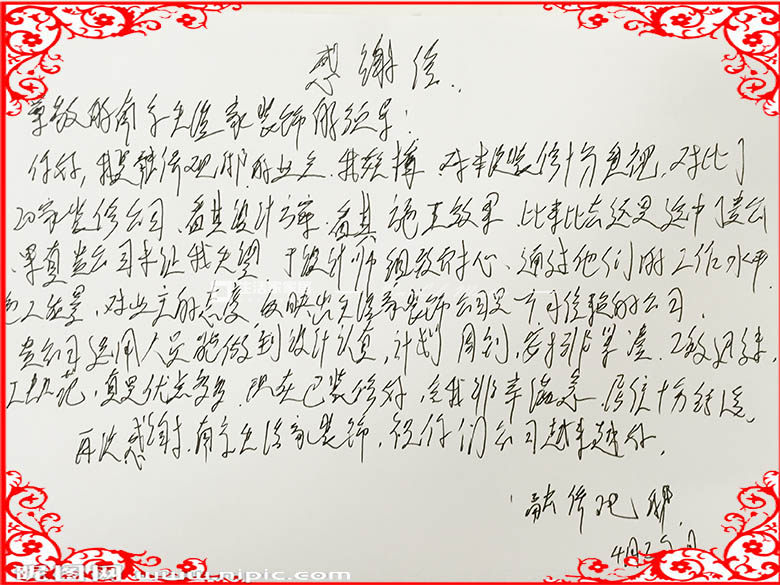 感谢信.
尊敬的南京生活家装饰的领导:
你好,我是融侨观邸的业主.我较撑 对本次装修十分重视,对比了
20家装修公司、看其设计方案.看其施工效果 比来比去还是选中了贵公司
果真贵公司未让我失望 设计师细致耐心、通过他们的工作水平
施工质量,对业主的态度 反映出生活家装饰公司是可信赖的公司.
贵公司运用人员能做到设计认真,计划周到,安排严谨.工效迅速,
工规范,真是优点多多 现在已装修好,令我非常满意 居住十分舒适。
再次感谢.南京生活家装饰,祝你们公司越来越好.
融侨观邸
4月29日
昵图网 www.nipic.com